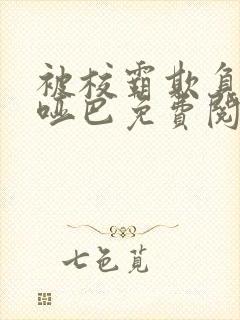 被校霸欺負
啞巴免費閱
七色莧